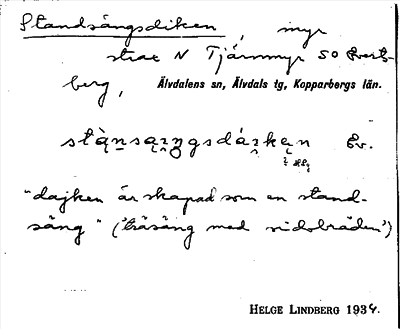 Standsängsdiken, myr
strax N Tjärnmyr SO Evert-
berg,
Älvdalens sn, Älvdals tg, Kopparbergs län.
Ev.
"dajken är skapad som en stand-
säng" ('träsäng med sidobräden')
HELGE LINDBERG 1934.